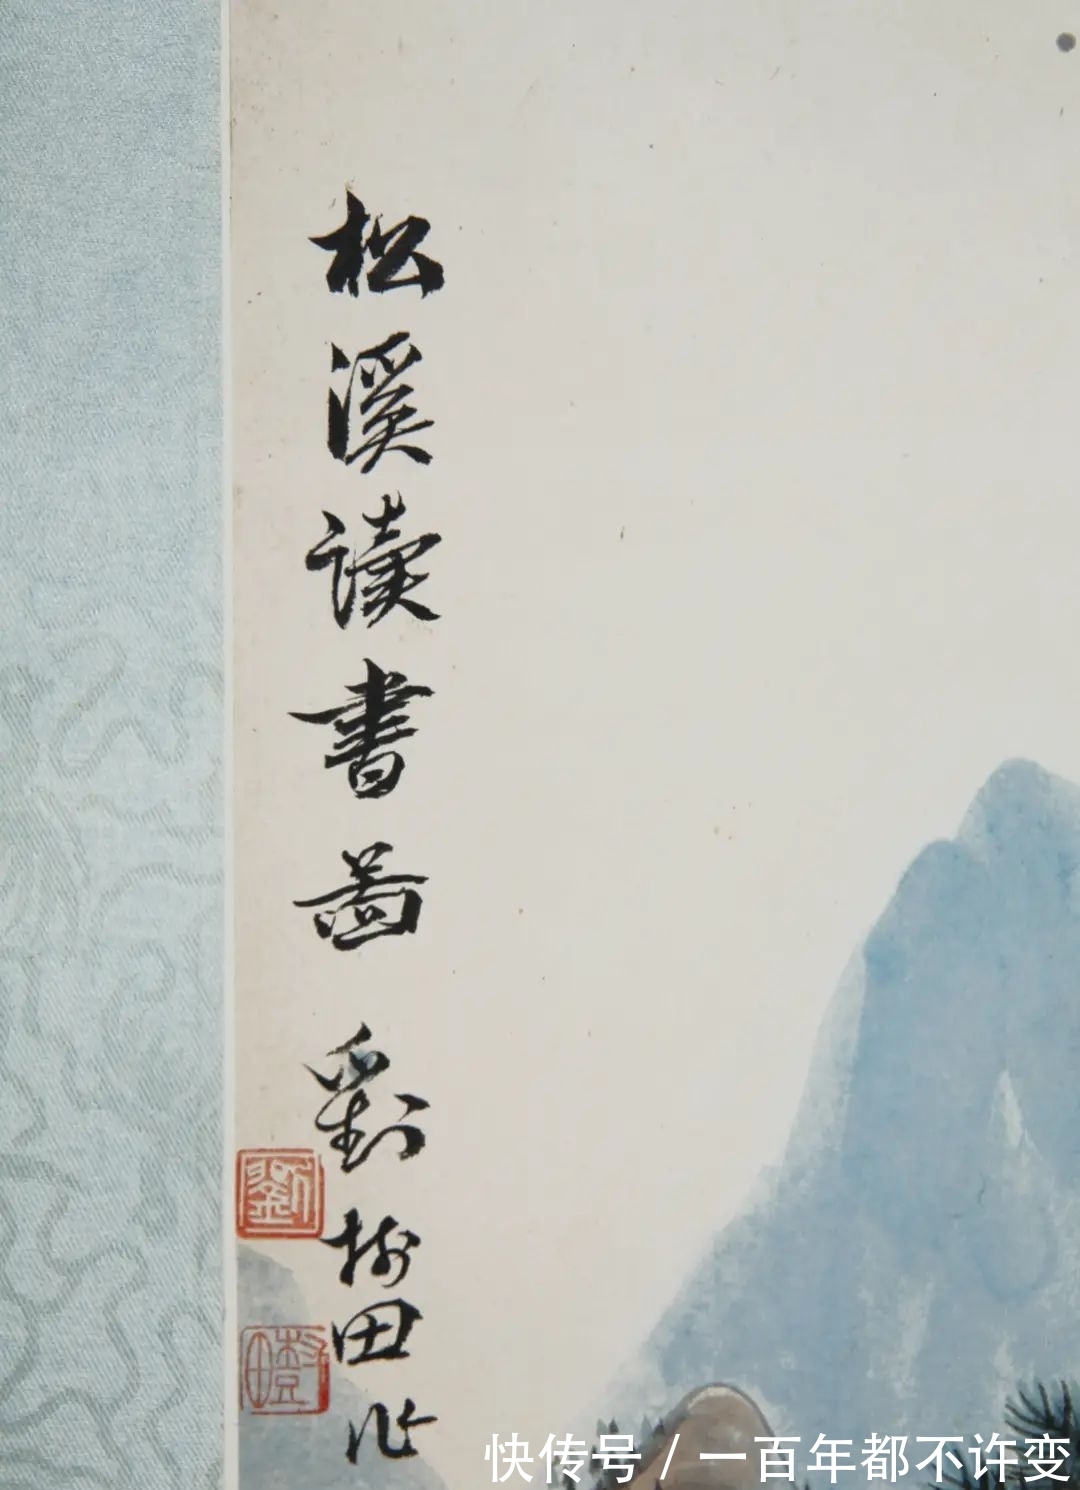 松溪读書啚 劉樹田作
劉
樹田
快传号 / 一百年都不许变